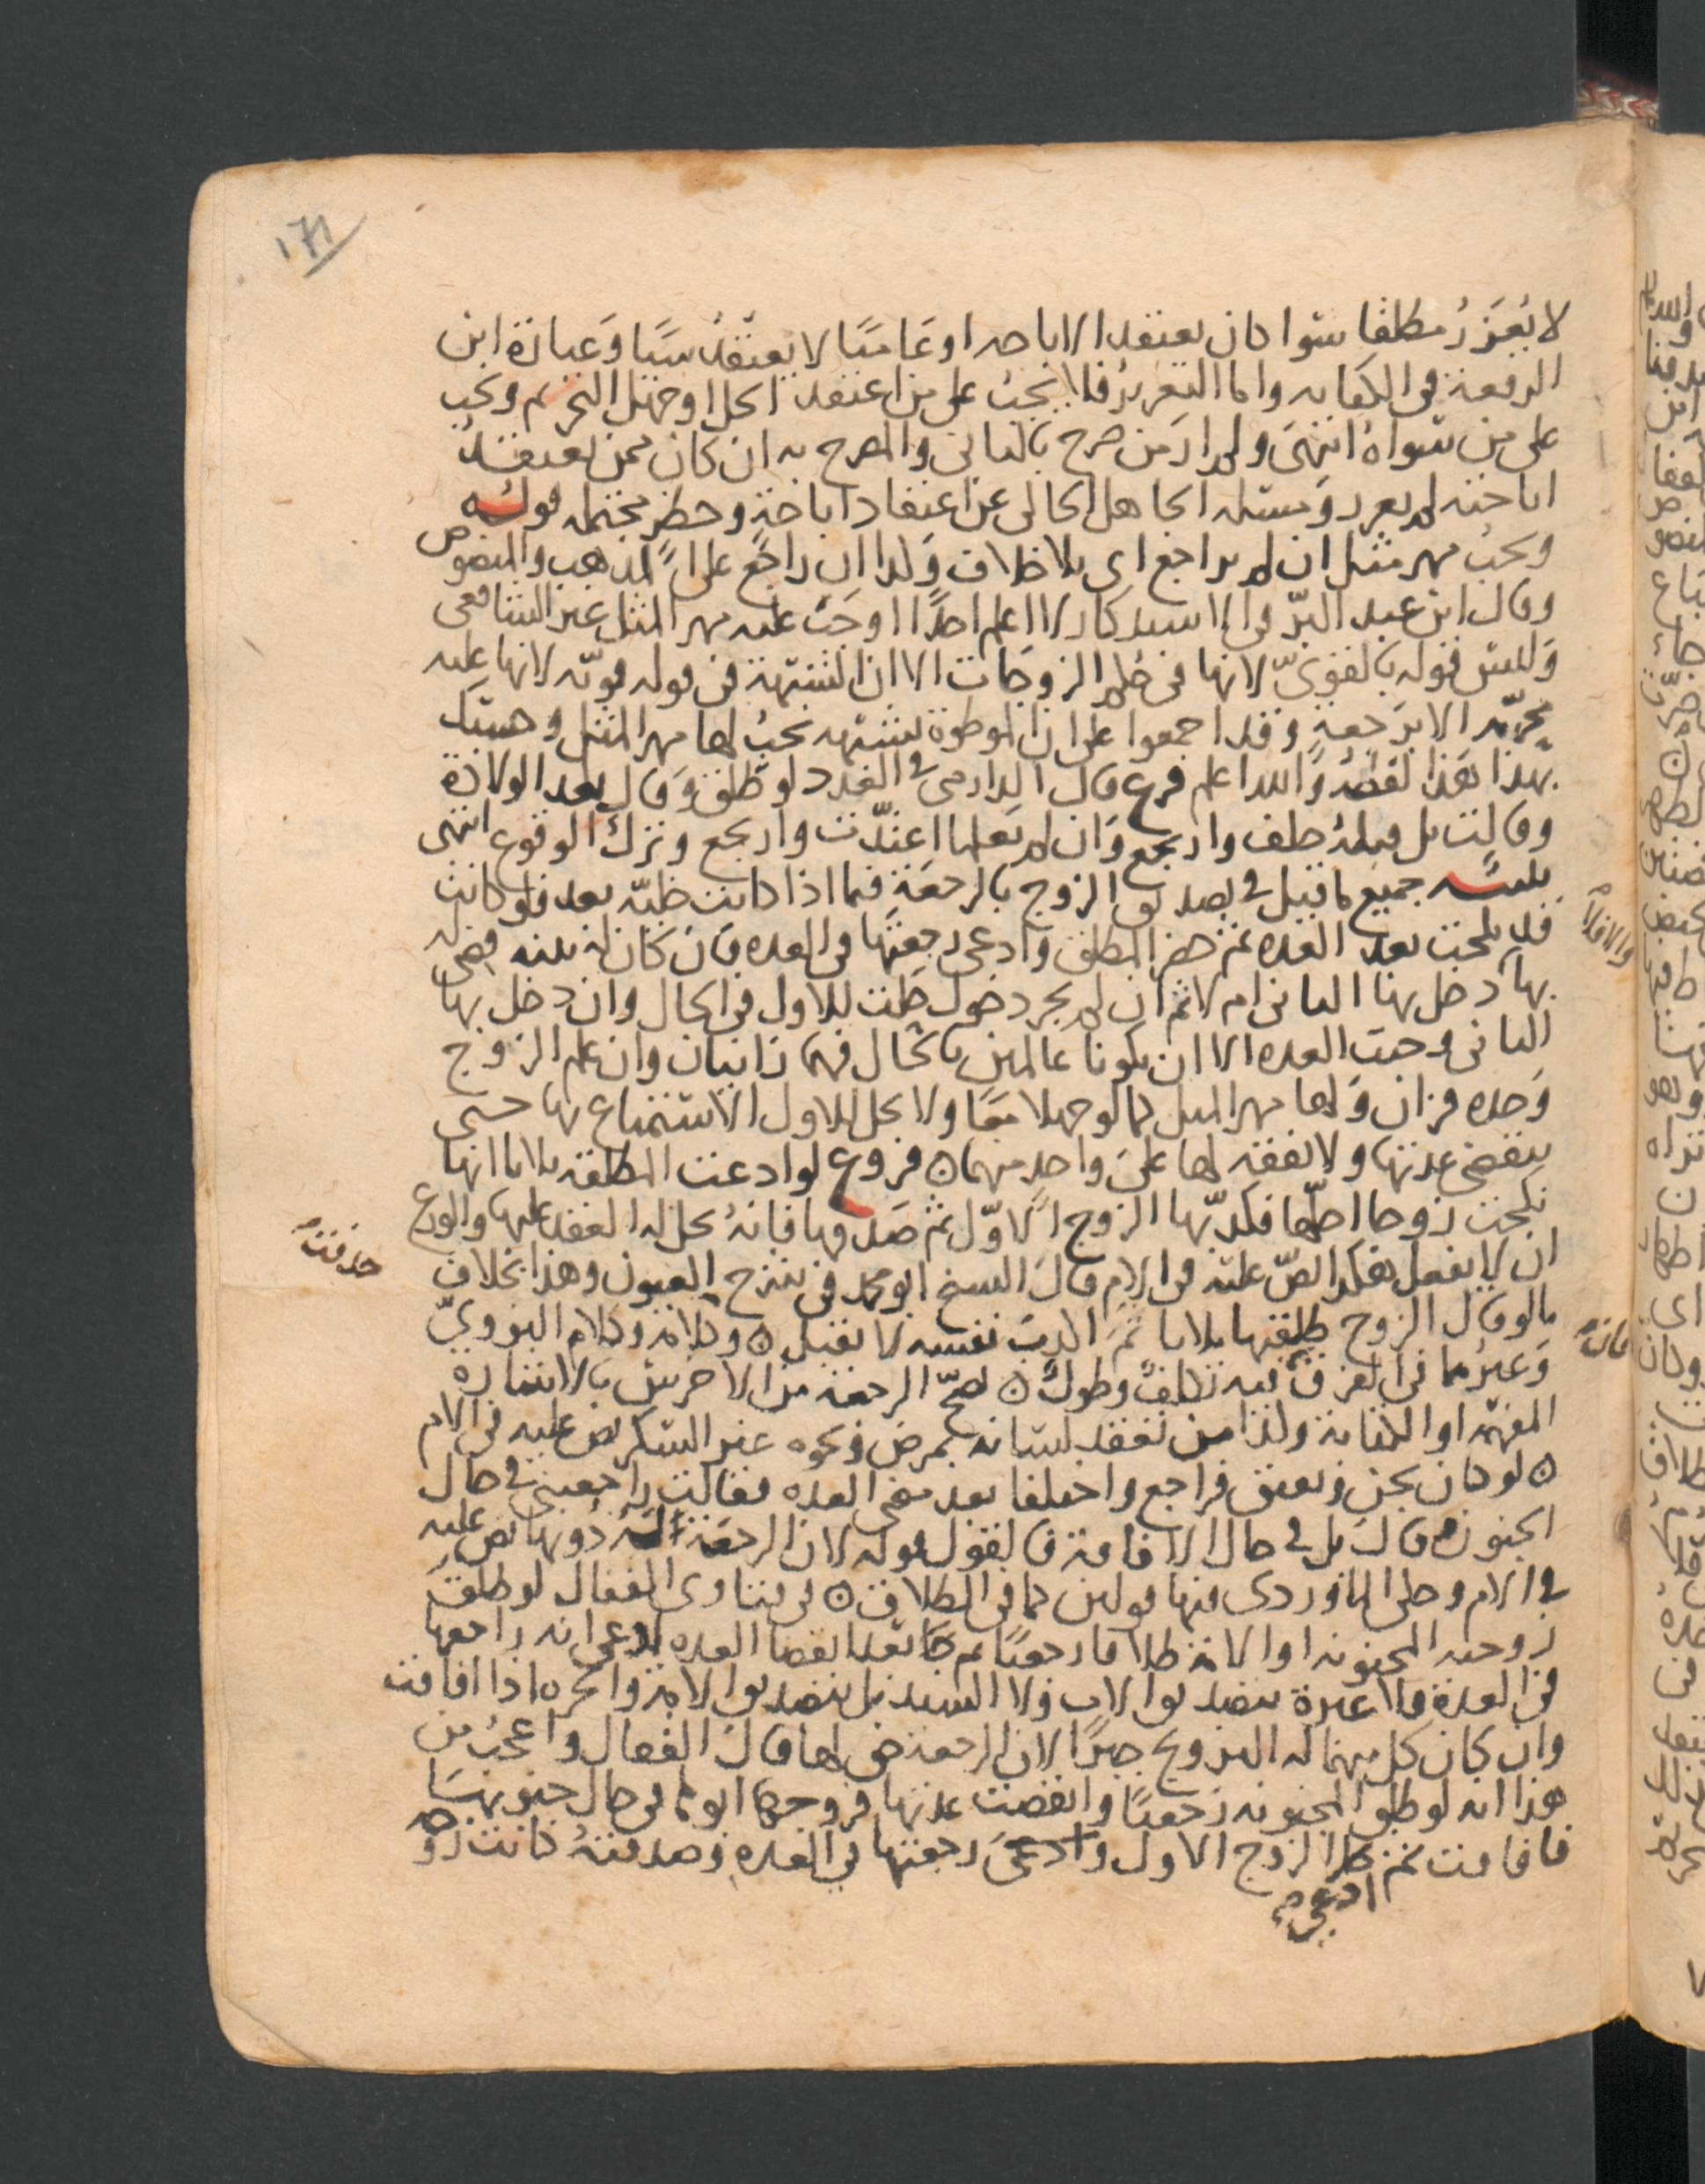 ١٧١
لا يُعَزَّرُ مطلقا سوا كان يعتقد الاباحه او عَاميًا لا يعتقدُ شيًا وَعبارة ابن
الرفعة في الكفايه واما التعزيرُ فلا يجبُ على من اعتقد الحل او جهل التحريم ويجب
على من سواهُ انتهىَ ولم ارَ من صرح بالثاني والمصرح به ان كان ممن يعتقدُ
اباحته لم يعزر وَمسئله الجاهل الخالى عن اعتقاد اباحةٍ وحظرٍ محتمله قولُه
ويجبُ مهر مثل ان لم يراجع اى بلا خلاف وَكذا ان راجَع على المذهب والمنصوص
وقال ابن عبد البرّ في الاستذكار لا اعلم احدًا اوجَبَ عليه مهر المثل غير الشافعى
وَليسَ قوله بالقوىّ لانها في حكم الزوجَات الا ان الشبهة في قوله قويّه لانها عليه
محرّمه الا برَجعةٍ وَقد اجمعوا على ان الموطوة بشبهه يجبُ لها مهر المثل وحسبُك
بهذا هَذا لفظُهُ وَالله اعلم فرع قال الدارمى في العدد لو طلق وَقال بعد الولادة
وقالت بل قبلهُ حلف وارتجع وَان لم يَعلما اعتدّت وارتجع وتركُ الوقوع انتهى
تنبيه جميع ما قيل في تصديق الزوج بالرجعَة فيما اذا كانت خليّه بعد فلو كانت
قد نكحت بعد العده ثم حضر المطلق وَادعى رجعتهَا في العده فان كان له بينه قضى له
بهَا دخل بها الثانى ام لا ثم ان لم يجر دخول حلت للاول في الحال وان دخل بها
الثانى وجبت العده الا ان يكونا عالمين بالحال فهما زانيان وان علم الزوج
وَحده فزانٍ وَلها مهر المثل كما لو جهلا معًا ولا يحل للاول الاستمتاع بها حتى
تنقضى عدتها ولا نفقه لها علىَ واحدٍ منهما ۞ فروع لو ادعت المطلقه ثلاثا انها
نكحت زوجا احلّها فكذّبها الزوج الاوّل ثم صَدقها فانهُ يحل له العقد عليها والورع
ان لا يفعل هكذا نصّ عليه في الام قال الشيخ ابو محمد في شرح العيون وهذا بخلاف
ما لو قال الزوج طلقتها ثلاثا ثمَ اكذبَ نفسه لا تقبل ۞ وكلامه وكلام النوويّ
وَغيرهما في الفرق فيه تكلفُ وطولُ ۞ تصحّ الرجعه من الاخرس بالاشارة
المفهمة او الكتابة وكذا من تعقد لسانه بمرض وَنحوه غير السكر نص عليه في الام
۞ لو كان يجن وَيفيق فراجع واختلفا بعد مضى العده فقالت راجعتنى في حال
الجنون وقالَ بل في حال الافاقة فالقول قوله لان الرجعَة اليهُ دُونها نص عليه
في الام وحكى الماوردى فيها قولين كما في الطلاق ۞ في فتاوى القفال لو طلقَ
زوجته المجنونه او الامة طلاقا رجعيًا ثم جَا بعد انقضا العده ادعى انه راجعها
في العدة فلا عبرة بتصديق الاب وَلا السيد بل بتصديق الامة والحره اذا افاقت
وان كان كل منهما له التزويج جبرًا لان الرجعة حق لها قالَ القفال واعجبُ من
هذا انه لو طلق المجنونه رجعيًا وانقضت عدتها فزوجها ابوها في حال جنونهَا
فافاقت ثم حضر الزوج الاول وَادعىَ رجعتها في العده وَصدقتهُ كانت زوجه
والا فلا
حذفت
فان
ادعى